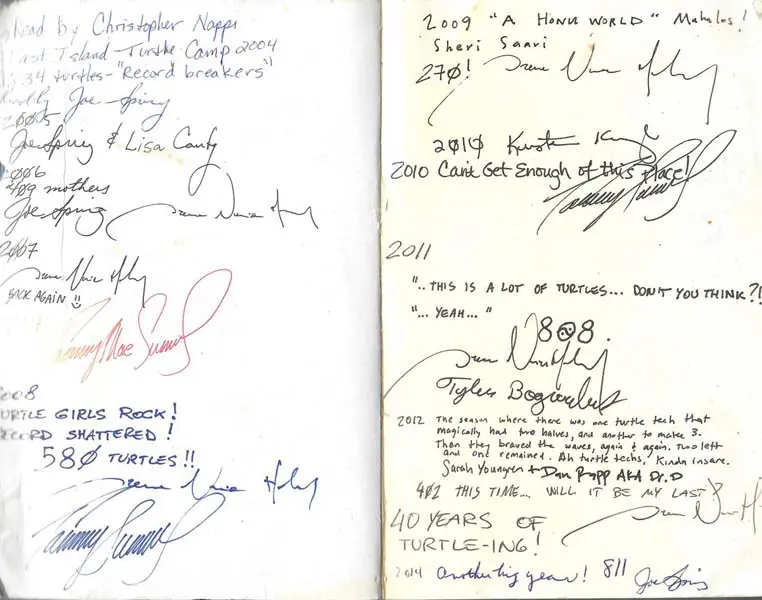 by Christopher Nappi
East Island Turtle Camp 2004
34 turtles - "Record breakers"
Joe Spring
2005
Joe Spring & Lisa Canty
006
409 mothers
Joe Spring
2007
BACK AGAIN
Tammy Mae Summers
008
URTLE GIRLS ROCK!
ECORD SHATTERED!
580 TURTLES!!
Tammy Summers
2009 "A HONU WORLD" Mahalos!
Sheri Saari
270!
2010
2010 Can't Get Enough of this Place!
Tammy Summers
2011
".. THIS IS A LOT OF TURTLES... DON'T YOU THINK?!
"... YEAH... "
808.
Tyler
2012 The season where there was one turtle tech that
magically had two halves, and another to make 3.
Then they braved the waves, again & again. Two left
and one remained. Ah turtle techs, kinda insane.
Sarah Youngren + Dan Rapp AKA Dr.D
402 THIS TIME... WILL IT BE MY LAST?
40 YEARS OF
TURTLE-ING!
2014 another big year! 811 Joe Spring